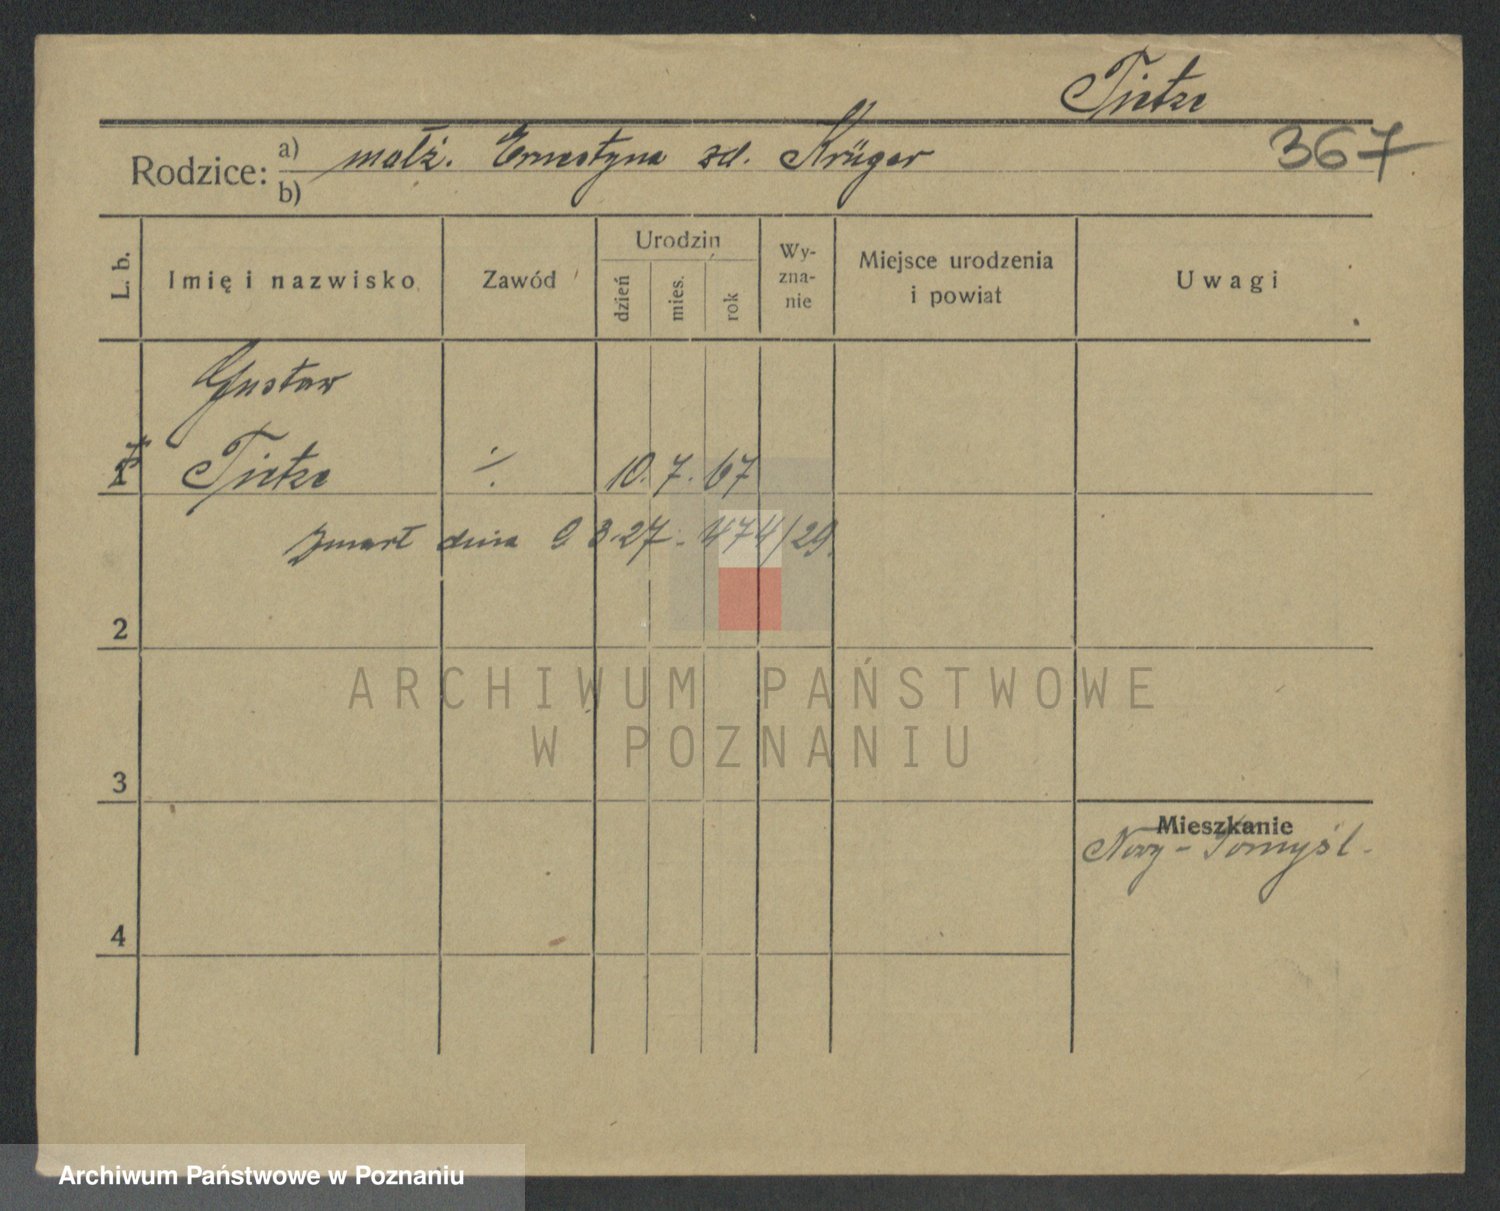 Tietze
Rodzice: a) małż. Ernestyna zd. Krüger 367
b)
L. b. Imię i nazwisko Zawód Urodzin dzień mies. rok Wyzna-nie Miejsce urodzenia i powiat Uwagi
Gustaw
1 Tietze ./. 10. 7. 67
zmarł dnia 9 3.27. 474/29.
2
ARCHIWUM PAŃSTWOWE
W POZNANIU
3
Mieszkanie
Nowy-Tomyśl.
4
Archiwum Państwowe w Poznaniu